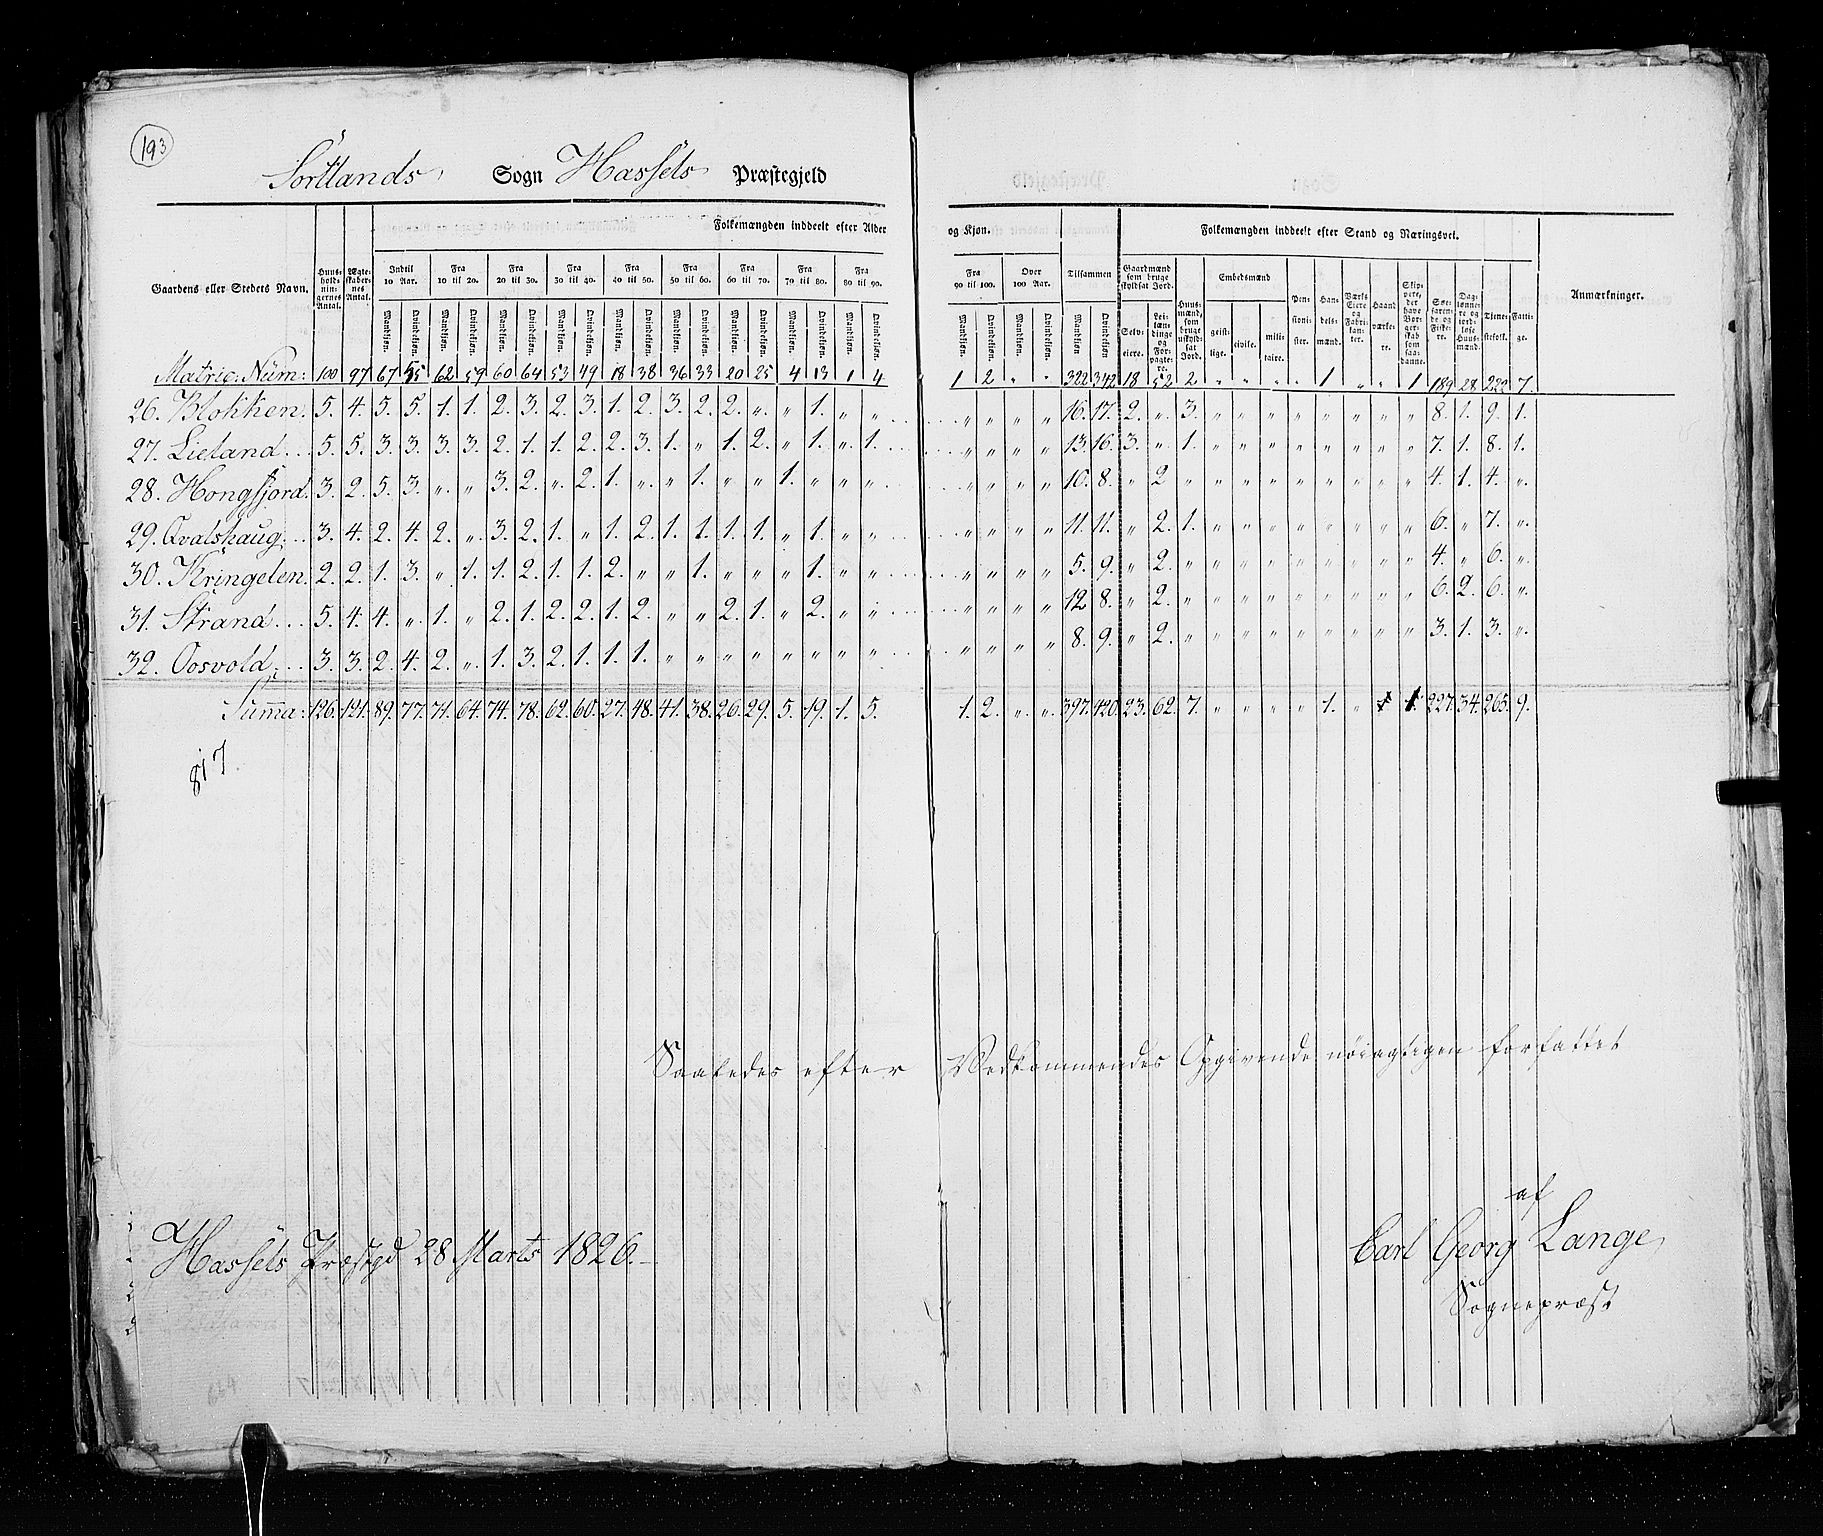 193
Sortlands Sogn Hassels Præstegjeld
Folkemængden inddeelt efter Alder og Kjøn. Folkemængden inddeelt efter Stand og Næringsvei.
Gaardens eller Stedets Navn. Huusholdningernes Antal. Ægteskabernes Antal. Indtil 10 Aar. Fra 10 til 20. Fra 20 til 30. Fra 30 til 40. Fra 40 til 50. Fra 50 til 60. Fra 60 til 70. Fra 70 til 80. Fra 80 til 90. Fra 90 til 100. Over 100 Aar. Tilsammen Gaardmænd som bruge skyldsat Jord. Huusmænd, som bruge uskyldsat Jord. Embedsmænd Pensionister. Handelsmænd. Værks Eiere og Fabrikanter. Haandværkere. Skippere, der have Borgerskab som saadanne. Søefarende og Fiskere. Daglønnere og jordløse Huusmænd. Tjenestefolk. Fattige. Anmærkninger.
Mandkiøn. Qvindekiøn. Mandkiøn. Qvindekiøn. Mandkiøn. Qvindekiøn. Mandkiøn. Qvindekiøn. Mandkiøn. Qvindekiøn. Mandkiøn. Qvindekiøn. Mandkiøn. Qvindekiøn. Mandkiøn. Qvindekiøn. Mandkiøn. Qvindekiøn. Mandkiøn. Qvindekiøn. Mandkiøn. Qvindekiøn. Mandkiøn Qvindekiøn. Selveiere. Leilændinge og Forpagtere. geistlige. civile. militaire.
Matric: Num: 100 97 67 55 62 59 60 64 53 49 18 38 36 33 20 25 4 13 1 4 1 2 " " 322 342 18 52 2 " " " " 1 " " 1 189 28 222 7
26. Blokken. 5. 4. 5. 5. 1. 1. 2. 3. 2. 3. 1. 2. 3. 2. 2. " " 1. " " " " " " 16. 17. 2. " 3. " " " " " " " " 8. 1. 9. 1.
27. Lieland 5. 5. 3. 3. 3. 3. 2. 1. 1. 2. 2. 3. 1. " 1. 2. " 1. " 1. " " " " 13. 16. 3. " 1. " " " " " " " " 7. 1. 8. 1.
28. Hongfjord. 3. 2. 5. 3. " " 3. 2. " 2. 1. " " 1. " " 1. " " " " " " " 10. 8. " 2 " " " " " " " " " 4. 1. 4. "
29. Qvalshaug 3. 4. 2. 4. 2. " 3. 2. 1. " 1. 2. 1. 1. 1. 1. " 1. " " " " " " 11. 11. " 2. 1. " " " " " " " " 6. " 7. "
30. Kringelen. 2. 2. 1. 3. " 1. 1. 2. 1. 1. 2. " " 1. " " " 1. " " " " " " 5. 9. " 2. " " " " " " " " " 4. " 6. "
31. Strand 5. 4. 4. " 1. " 2. 1. 2. 2. 1. 2. " " 2. 1. " 2. " " " " " " 12 8. " 2. " " " " " " " " " 6. 2. 6. "
32. Oosvold 3. 3. 2. 4. 2. " 1. 3. 2. 1. 1. 1. " " " " " " " " " " " " 8. 9. " 2. " " " " " " " " " 3. 1. 3. "
Summa: 126. 121. 89. 77. 71. 64. 74. 78. 62. 60. 27. 48. 41. 38. 26. 29. 5. 19. 1. 5. 1. 2. " " 397. 420. 23. 62. 7. " " " " 1. " 1 1. 227. 34. 265. 9.
817.
Saaledes efter Vedkommendes Opgivende nøiagtigen forfattet
af
Hassels Præstgd 28 Marts 1826. Carl Georg Lange
Sognepræst